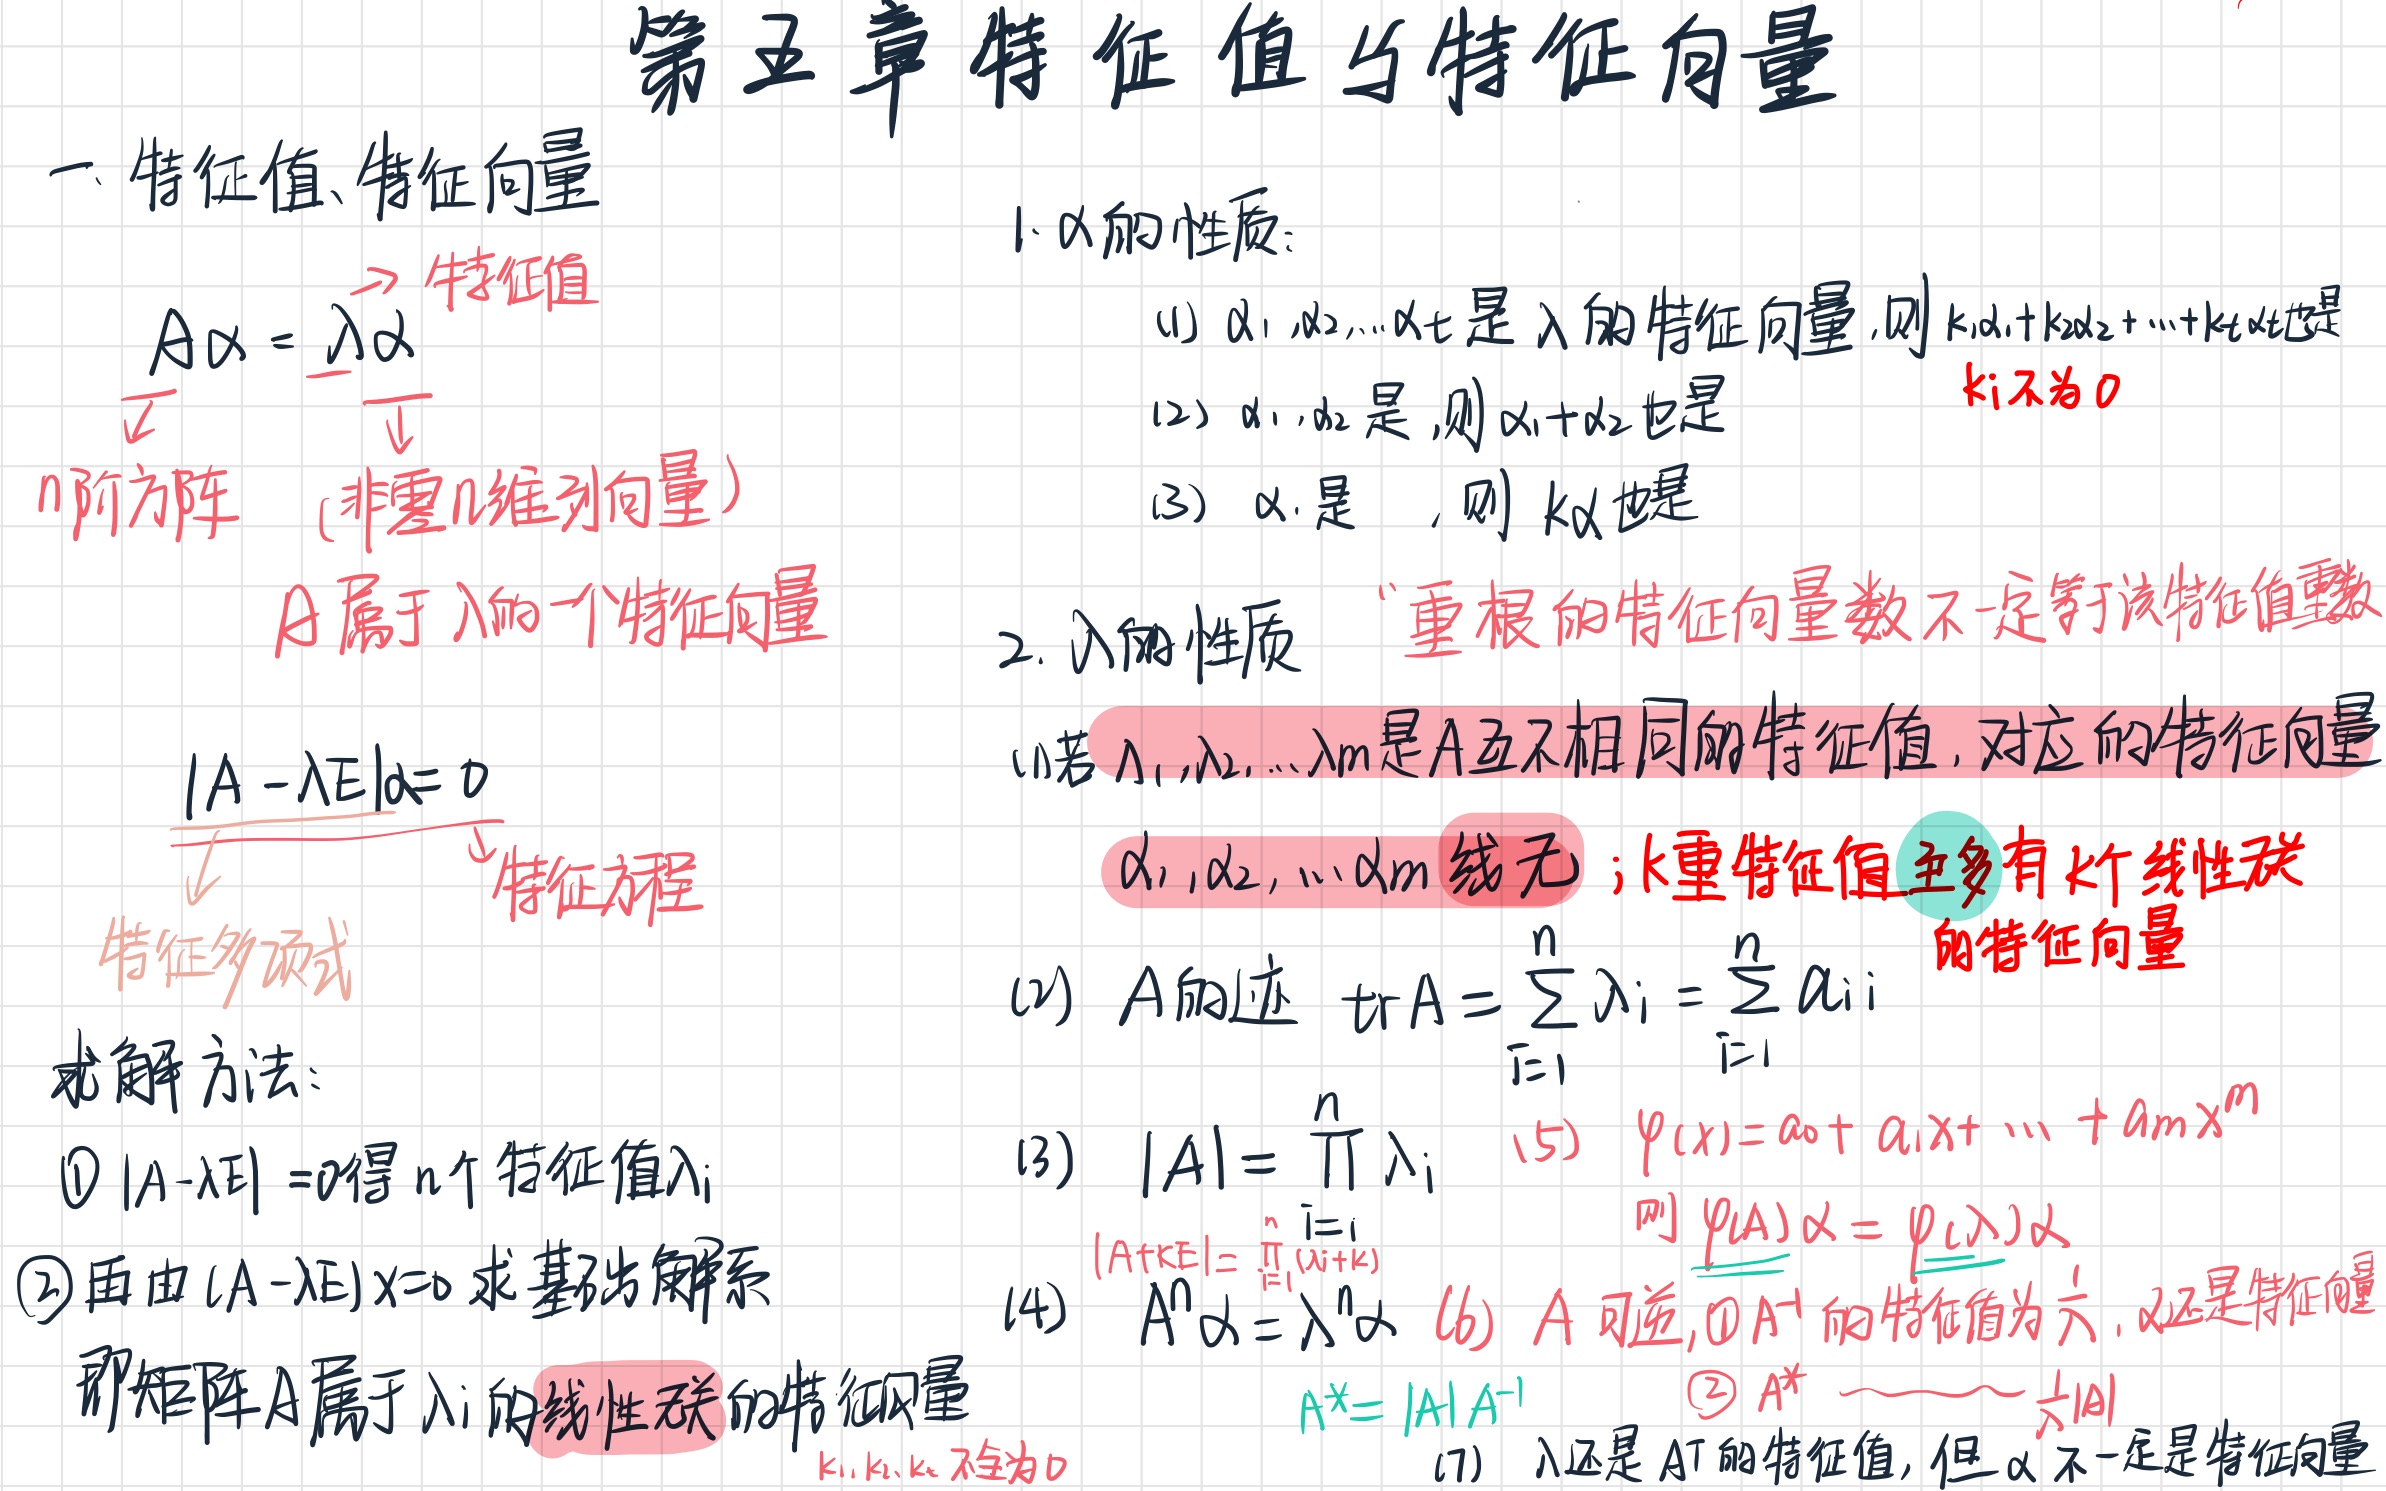 第五章特征值与特征向量
一、特征值、特征向量
→ 特征值
Aα = λα
n阶方阵 (非零n维列向量)
A属于λ的一个特征向量
|A-λE|α=0
特征方程
特征多项式
求解方法:
① |A-λE| =0得 n个特征值λi
② 再由(A-λE)x=0 求基础解系
即矩阵A属于λi的线性无关的特征向量
k₁,k₂,kt 不全为0
1. α的性质:
(1) α₁,α₂,…αt是λ的特征向量,则k₁α₁+k₂α₂+…+ktαt也是
ki不为0
(2) α₁,α₂是,则α₁+α₂也是
(3) α₁是 ,则 kα也是
2. λ的性质
“重根的特征向量数不一定等于该特征值重数
(1)若λ₁,λ₂,…λm是A互不相同的特征值,对应的特征向量
α₁,α₂,…αm线无 ;k重特征值至多有k个线性无关
的特征向量
(2) A的迹 trA = ∑ⁿᵢ₌₁ λi = ∑ⁿᵢ₌₁ aii
(3) |A| = ∏ⁿᵢ₌ᵢ λi
|A+kE| = ∏ⁿᵢ₌₁ (λi+k)
(4) Aⁿα = λⁿα
(5) φ(x) = a₀+ a₁x+ … + amxᵐ
则 φ(A)α = φ(λ)α
(6) A可逆,①A⁻¹的特征值为1/λ,α还是特征向量
② A* ~ 1/λ|A|
A*=|A|A⁻¹
(7) λ还是Aᵀ的特征值,但α不一定是特征向量